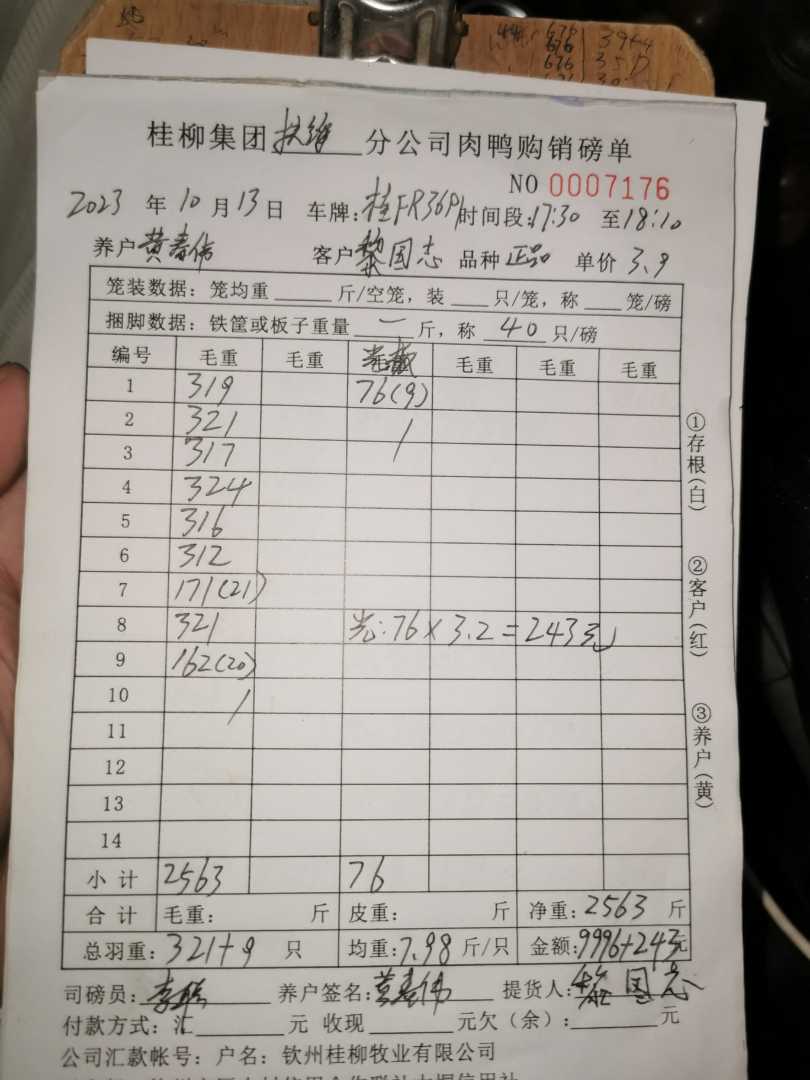 桂柳集团扶绥分公司肉鸭购销磅单
NO 0007176
2023 年 10 月 13 日 车牌:桂FR369 时间段:17:30 至18:10
养户黄春伟 客户黎国志 品种 正品 单价 3.9
笼装数据: 笼均重 斤/空笼, 装 只/笼, 称 笼/磅
捆脚数据: 铁筐或板子重量 一 斤, 称 40 只/磅
编号 毛重 毛重 毛重 毛重 毛重
1 319 76(9)
2 321 /
3 317
4 324
5 316
6 312
7 171(21)
8 321 光:76×3.2=243元
9 162(20)
10 /
11
12
13
14
小计 2563 76
合计 毛重: 斤 皮重: 斤 净重:2563 斤
总羽重:321+9 只 均重:7.98 斤/只 金额:9996+243元
司磅员: 养户签名:黄春伟 提货人:黎国志
付款方式: 汇 元 收现 元欠(余): 元
公司汇款帐号: 户名: 钦州桂柳牧业有限公司
①存根(白)
②客户(红)
③养户(黄)
676
676 39+4